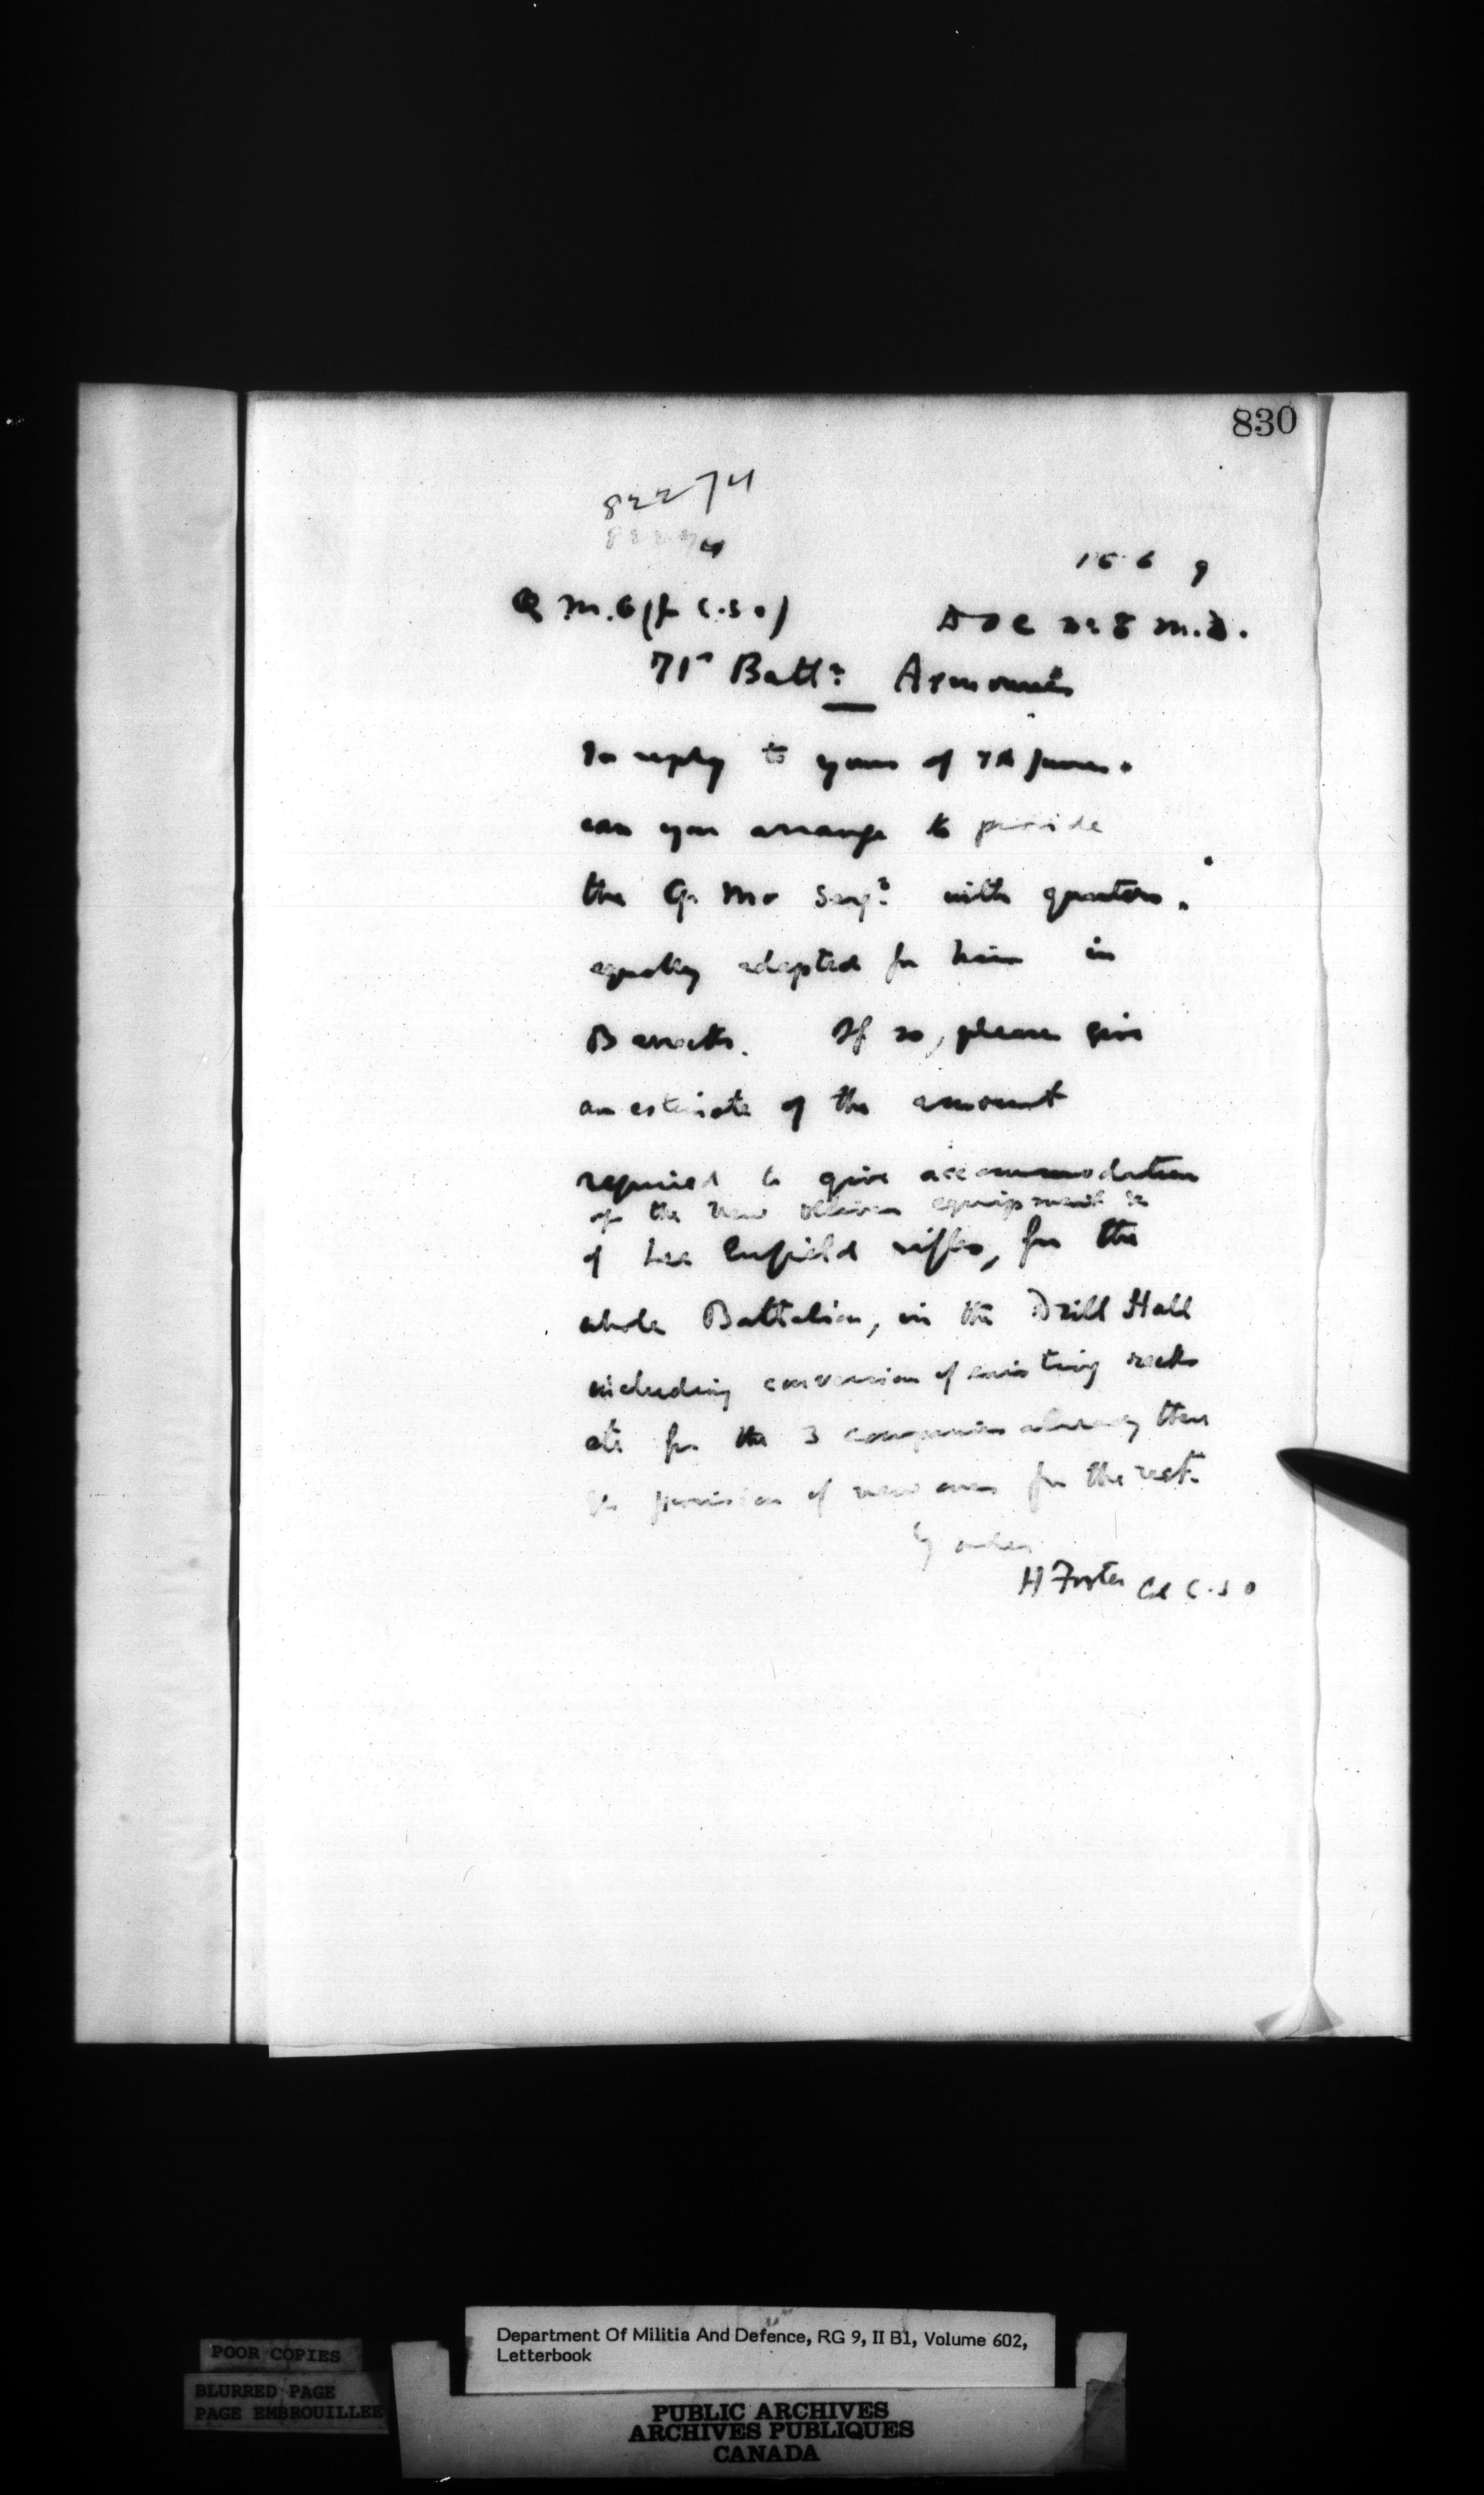 830
82274
82274
15 6 9
Q M.G (f C.S.O)
DOC No 8 M.D.
71st Battn Armouries
In reply to yours of 7th June.
can you arrange to provide
the Qr Mr Sergt with quarters.
equally adapted for him in
Barracks. If so, please give
an estimate of the amount
required to give accommodation
of the new Oliver equipment &
of Lee Enfield rifles, for the
whole Battalion, in the Drill Hall
including conversion of existing racks
etc for the 3 companies already there
& provision of new ones for the rest.
By order
H Foster Col C.S.O
Department Of Militia And Defence, RG 9, II B1, Volume 602,
Letterbook
POOR COPIES
BLURRED PAGE
PAGE EMBROUILLEE
PUBLIC ARCHIVES
ARCHIVES PUBLIQUES
CANADA